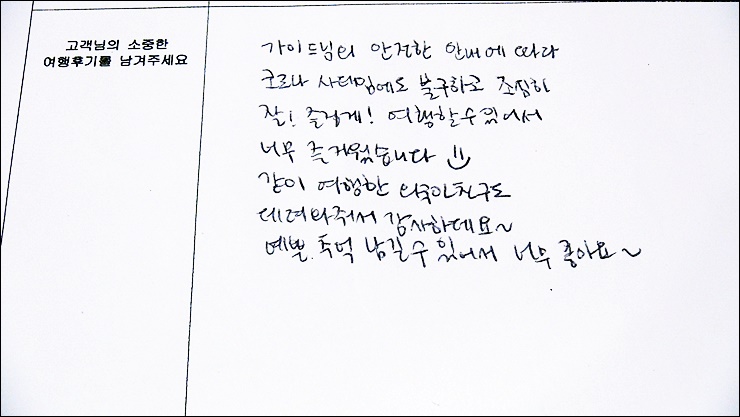 고객님의 소중한
여행후기를 남겨주세요
가이드님의 안전한 안내에 따라
코로나 사태임에도 불구하고 조심히
잘! 즐겁게! 여행할수 있어서
너무 즐거웠습니다
같이 여행한 외국인친구도
데려와줘서 감사하데요~
예쁜 추억 남길수 있어서 너무 좋아요~